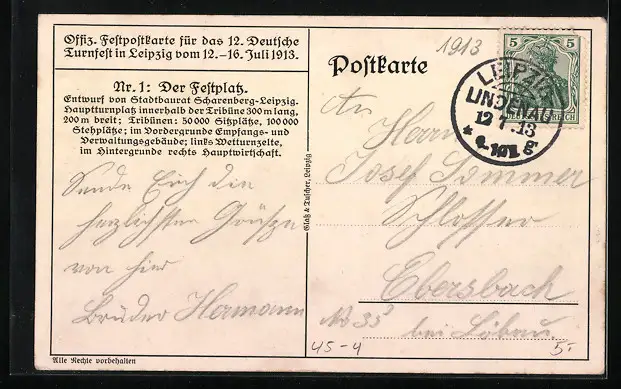 Offiz. Festpostkarte für das 12. Deutsche
Turnfest in Leipzig vom 12.–16. Juli 1913.
Nr. 1: Der Festplatz.
Entwurf von Stadtbaurat Scharenberg-Leipzig.
Hauptturnplatz innerhalb der Tribüne 300 m lang,
200 m breit; Tribünen: 50000 Sitzplätze, 100000
Stehplätze; im Vordergrunde Empfangs- und
Verwaltungsgebäude; links Wetturnzelte,
im Hintergrunde rechts Hauptwirtschaft.
Sende Euch die
herzlichsten Grüsse
von hier
Bruder Hermann
Alle Rechte vorbehalten
Glaß & Tuscher, Leipzig
1913
Postkarte
5 5
LEIPZIG
LINDENAU
12.7.13
An
Herrn
Josef Sommer
Schlosser
Ebersbach
No 33
bei Löbau
45-4
5.-